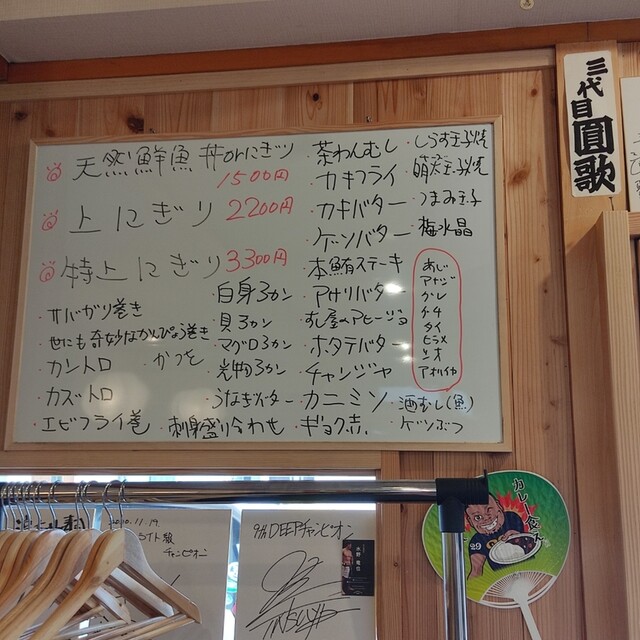 天然鮮魚丼orにぎり
1500円
上にぎり 2200円
特上にぎり 3300円
サバガリ巻き
世にも奇妙なかんぴょう巻き
カントロ
かつを
カズトロ
エビフライ巻
刺身盛り合わせ
白身3カン
貝3カン
マグロ3カン
光物3カン
うなぎバター
茶わんむし
カキフライ
カキバター
ゲソバター
本鮪ステーキ
アサリバター
ホタテバター
チャンジャ
カニミソ
しらす玉子焼
明太玉子焼
つまみ玉子
梅水晶
あじ
アナゴ
グレ
タチ
タイ
ヒラメ
アオリイカ
酒むし(魚)
ゲソぶつ
三代目
圓歌
カレー食え
29
2020.11.19
チャンピオン
9代DEEPチャンピオン